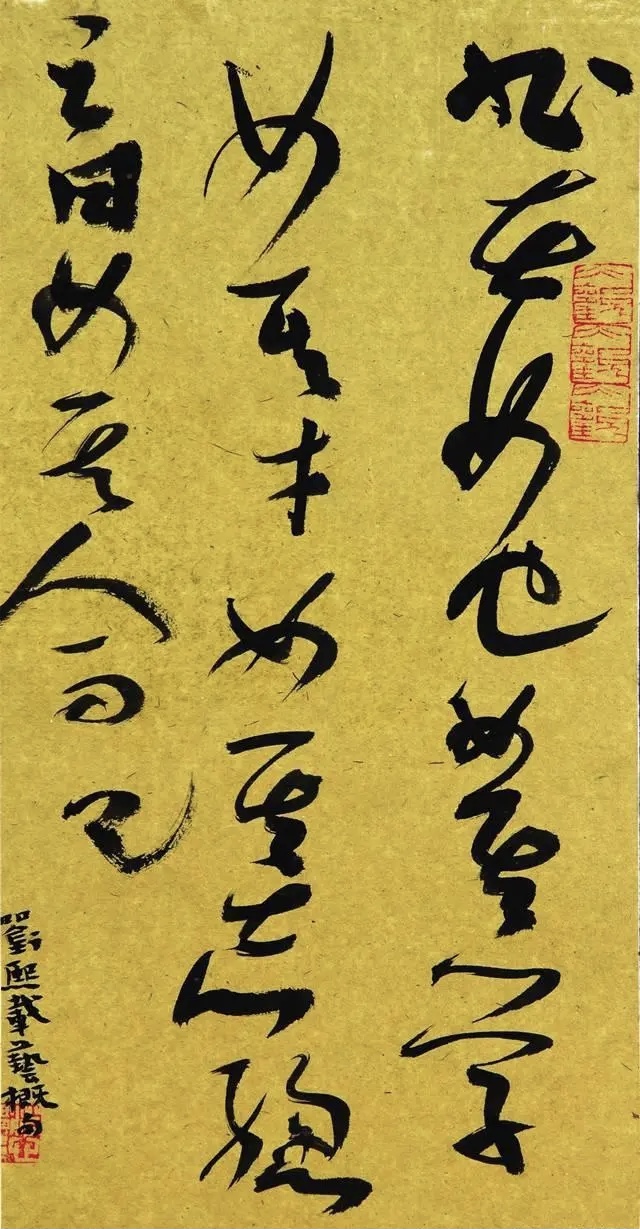 書者如也如其学
如其才如其志總
之曰如其人而已
劉熙載藝概句